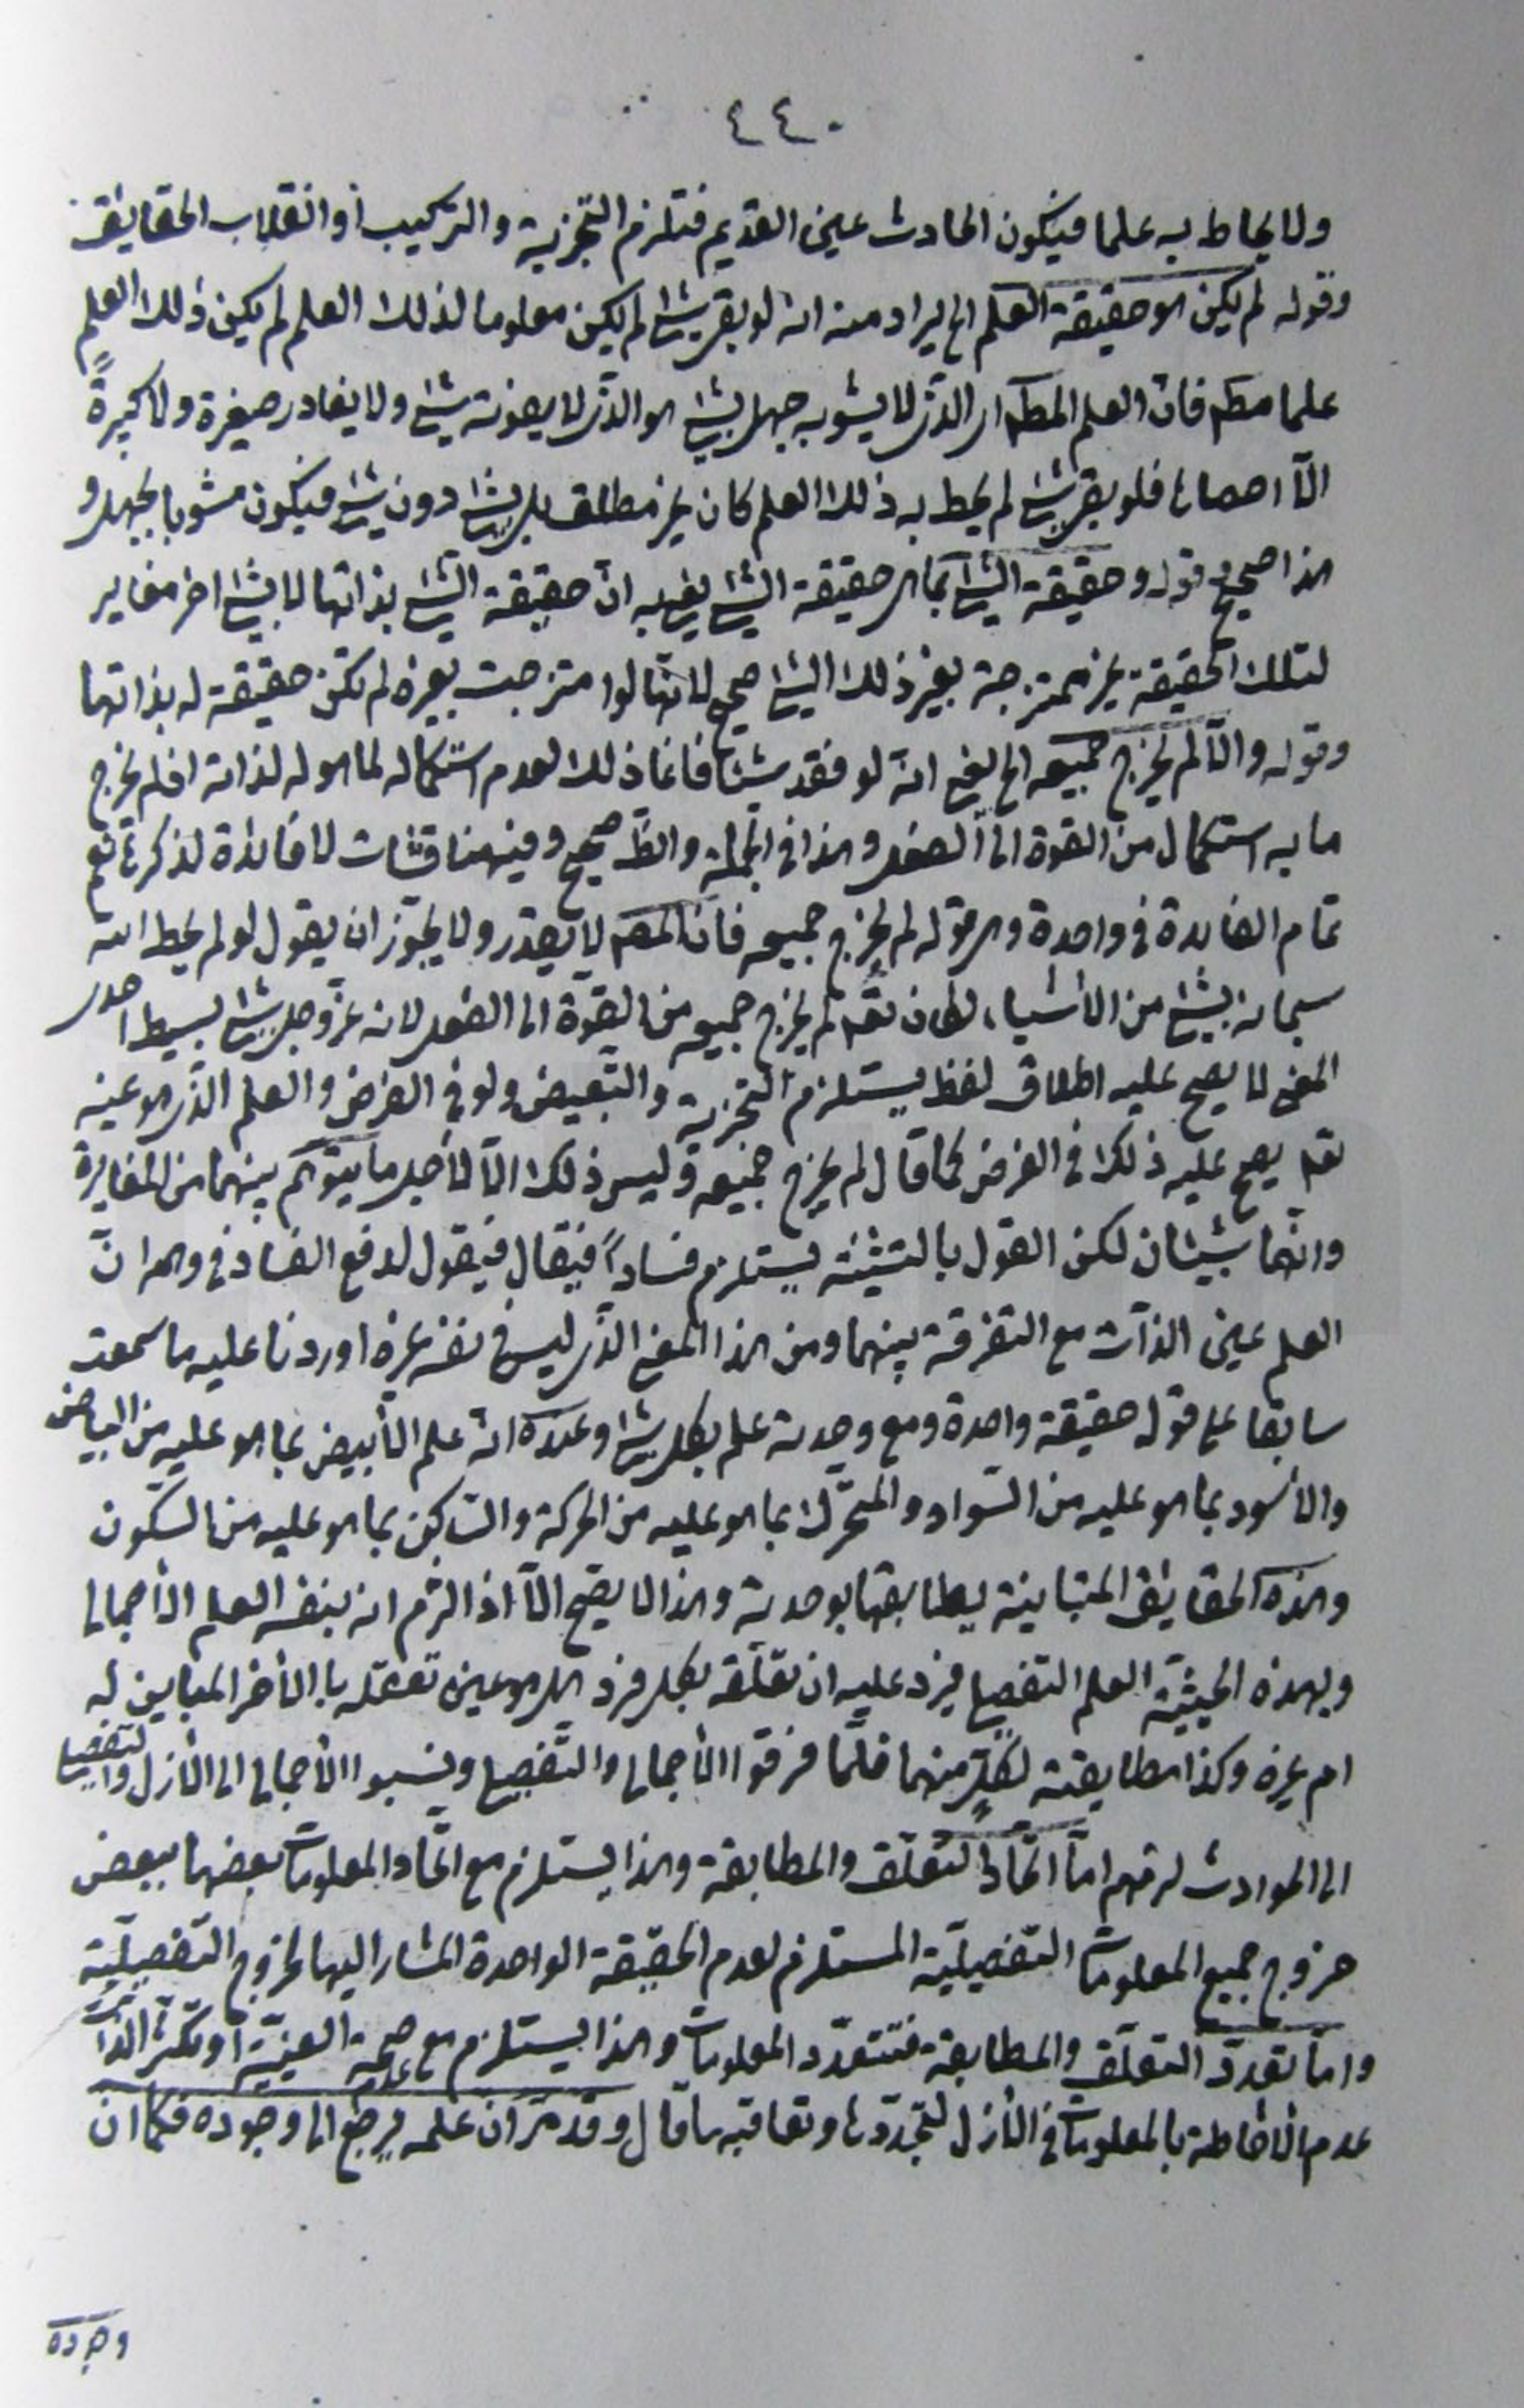 ٤٤٠
ولا يحاط به علما فيكون الحادث عين القديم فتلزم التجزية والتركيب أو انقلاب الحقايق
وقوله لم يكن هو حقيقة العلم الخ يراد منه انه لو بقى شئ لم يكن معلوما لذلك العلم لم يكن ذلك العلم
علما مطلقا فان العلم المطلق اى الذى لا يشوبه جهل بشئ هو الذى لا يفوته شئ ولا يغادر صغيرة ولا كبيرةً
الّا احصاها فلو بقى شئ لم يحط به ذلك العلم كان غير مطلق بل بشئ دون شئ فيكون مشوبا بالجهل و
هذا صحيح وقوله وحقيقة الشئ بما هى حقيقة الشئ يريد به انّ حقيقة الشئ بذاتها لا بشئ اخر مغاير
لتلك الحقيقة غير ممتزجة بغير ذلك الشئ صحيح لانّها لو امتزجت بغيره لم تكن حقيقة له بذاتها
وقوله والّا لم يخرج جميعه الخ يعنى انه لو فقد شيئا فانما ذلك لعدم استكماله لما هو له لذاته اذ لم يخرج
ما به استكمال من القوة الى الفعل وهذا فى الجملة والظّ صحيح وفيه مناقشات لا فائدة لذكرها نعم
تمام الفايدة فى واحدة وهى قوله لم يخرج جميعه فانّ المصّ لا يقدر ولا يجوّز ان يقول لو لم يحط الله
سبحانه بشئ من الأشياء لكان نقّه لم يخرج جميعه من القوّة الى الفعل لانه عزّ وجل شئ بسيط احدى
المعنى لا يصح عليه اطلاق لفظ يستلزم التجزية والتبعيض ولو فى الفرض والعلم الذى هو عينه
نقه يصح عليه ذلك فى الفرض كما قال لم يخرج جميعه وليس ذلك الّا لأجل ما يتوهّم بينهما من المغايرة
وانّهما شيئان لكن القول بالتثنية يستلزم فساداً فيقال فيقول لدفع الفساد فى وهمه انّ
العلم عين الذات مع التفرقة بينهما ومن هذا المعنى الذى ليس فى نفسه غيره اوردنا عليه ما سمعت
سابقا على قوله حقيقة واحدة ومع وحدته علم بكل شئ وعنده انه علم الأبيض بما هو عليه من البياض
والأسود بما هو عليه من السّواد والمتحّرك بما هو عليه من الحركة والساكن بما هو عليه من السكون
وهذه الحقايق المتباينة يطابقها بوحدته وهذا لا يصح الّا اذا التزم انه بنفسه العلم الأجمالى
وبهذه الحيثيّة العلم التفصيلى فيرد عليه ان تعلّقه بكل فرد هل هو عين تعقّله بالأخر المباين له
ام غيره وكذا مطابقته لكلٍّ منهما فلمّا فرقوا الأجمالى والتّفصيلى ونسبوا الأجمالى الى الأزل والتفصيلى
الى الحوادث لزمهم امّا اتّحاد التّعلّق والمطابقة وهذا يستلزم مع اتحاد المعلومات بعضها ببعض
خروج جميع المعلومات التفصيليّة المستلزم لعدم الحقيقة الواحدة المشار اليها لخروج التفصيليّة
وامّا تعدّد التعلّق والمطابقة فتتعدّد المعلومات وهذا يستلزم مع صحة العينيّة او تكثّر الذات
عدم الأحاطة بالمعلومات فى الأزل لتجدّدها وتعاقبها قال وقد مرّ ان علمه يرجع الى وجوده فكما ان
وجوده